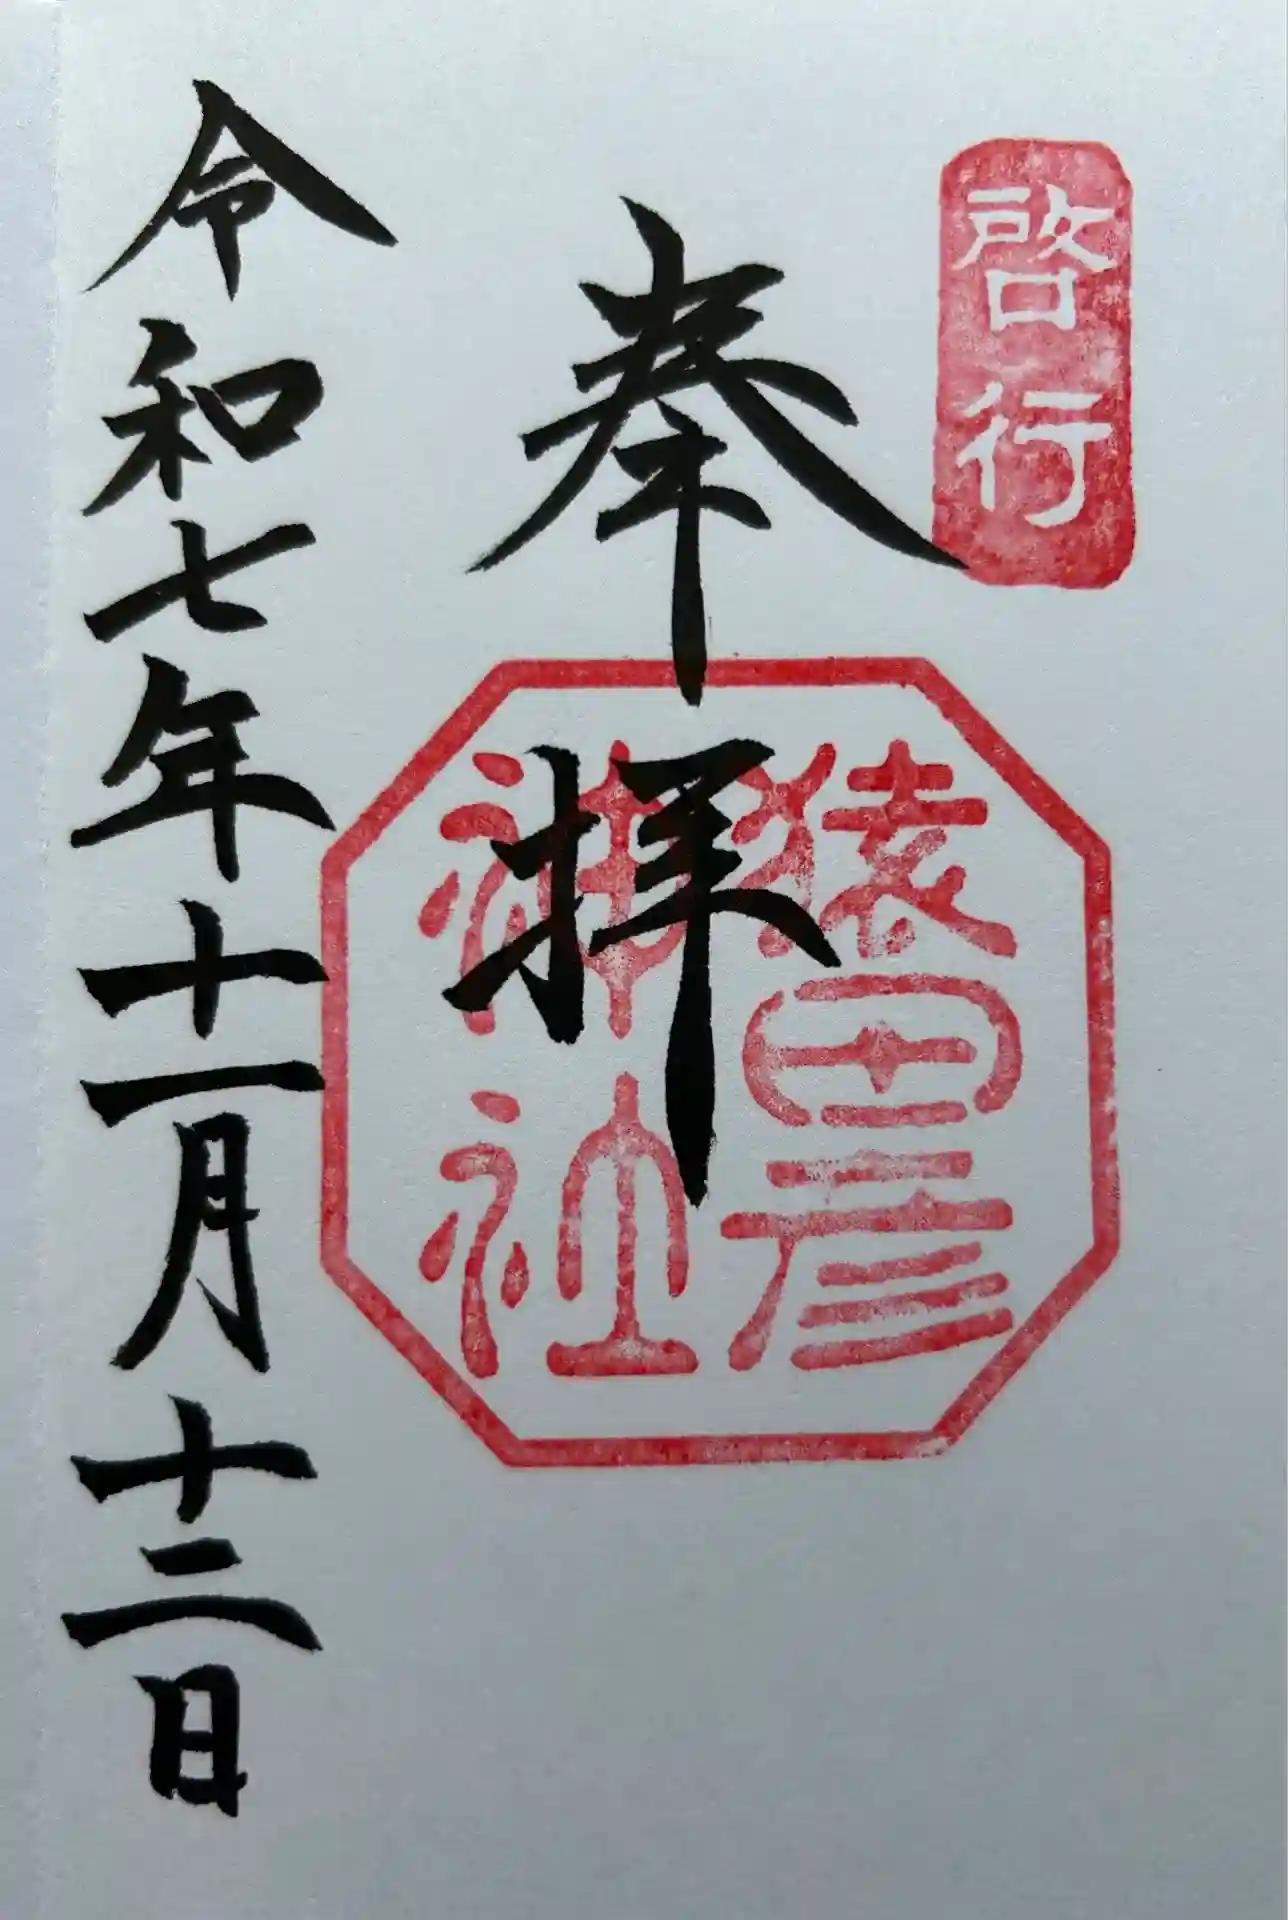 啓行
奉拝
猿田彦
神社
令和七年十一月十二日